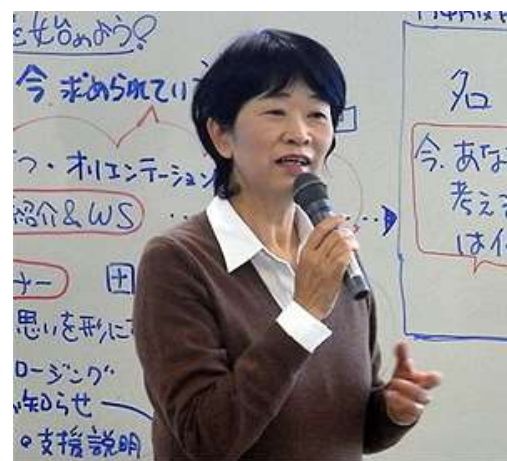 を始めよう?
今 求められてい
つ・オリエンテーション
紹介&WS
ナー
思いを形に
ロージング
お知らせ
の支援説明
名
今、あな
考え
は